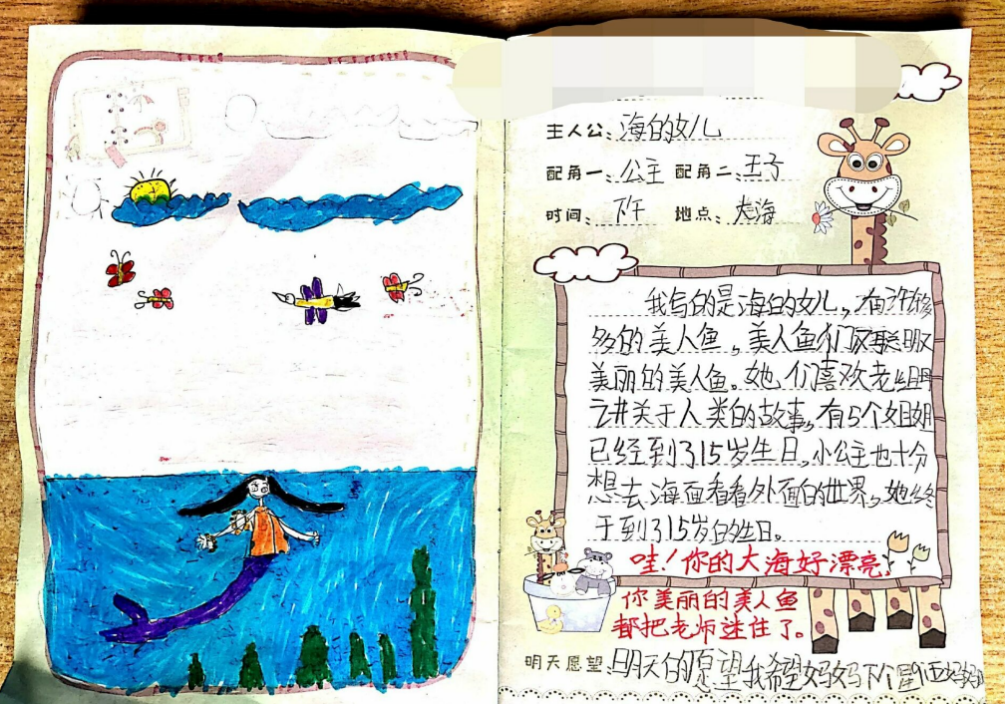 主人公: 海的女儿
配角一: 公主 配角二: 王子
时间: 下午 地点: 大海
我写的是海的女儿,有许多
多的美人鱼,美人鱼们
美丽的美人鱼。她们喜欢老祖母
讲关于人类的故事,有5个姐姐
已经到了15岁生日,小公主也十分
想去海面看看外面的世界,她终
于到了15岁的生日。
哇!你的大海好漂亮,
你美丽的美人鱼
都把老师迷住了。
明天愿望 明天的愿望我希望妈妈下个星